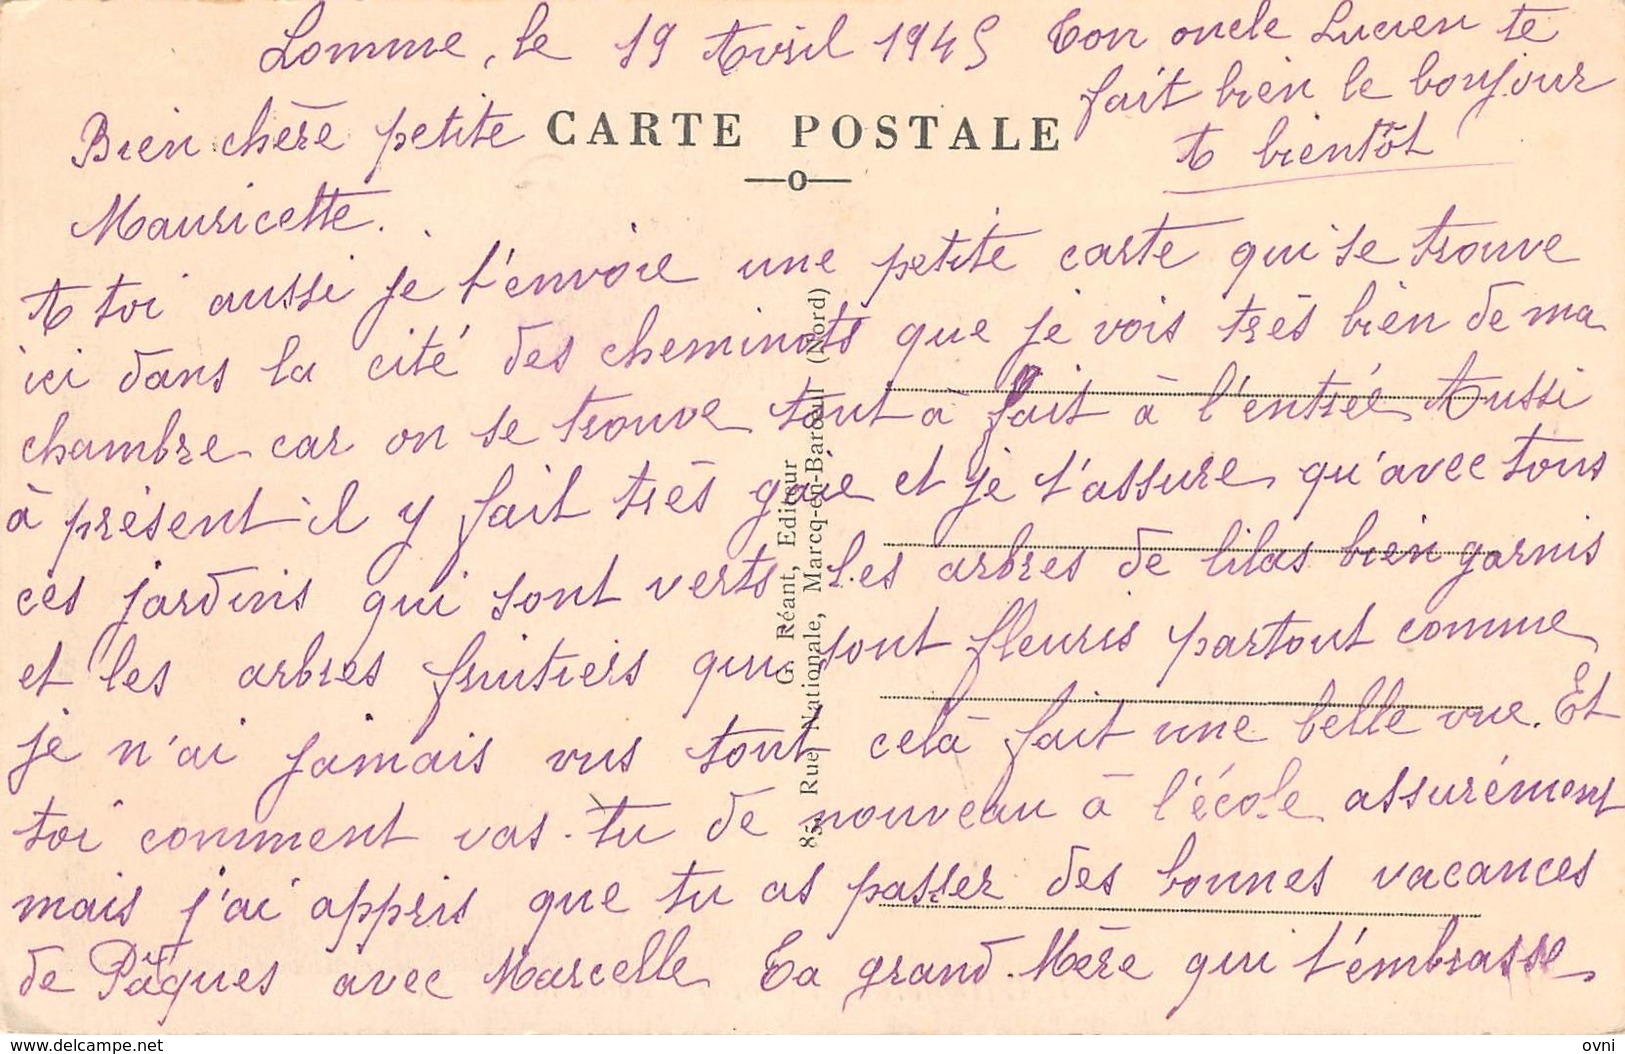 Lomme, le 19 Avril 1945
Ton oncle Lucien te
fait bien le bonjour
A bientôt
CARTE POSTALE
Bien chère petite
Mauricette.
A toi aussi je t'envoie une petite carte qui se trouve
ici dans la cité des cheminots que je vois très bien de ma
chambre car on se trouve tout à fait à l'entrée Aussi
à présent il y fait très gaie et je t'assure qu'avec tous
ces jardins qui sont verts les arbres de lilas bien garnis
et les arbres fruitiers qui sont fleuris partout comme
je n'ai jamais vus tout celà fait une belle vue. Et
toi comment vas-tu de nouveau à l'école assurément
mais j'ai appris que tu as passer des bonnes vacances
de Pâques avec Marcelle Ta grand-Mère qui t'embrasse
G. Réant, Editeur
85, Rue Nationale, Marcq-en-Barœul (Nord)
www.delcampe.net
ovni